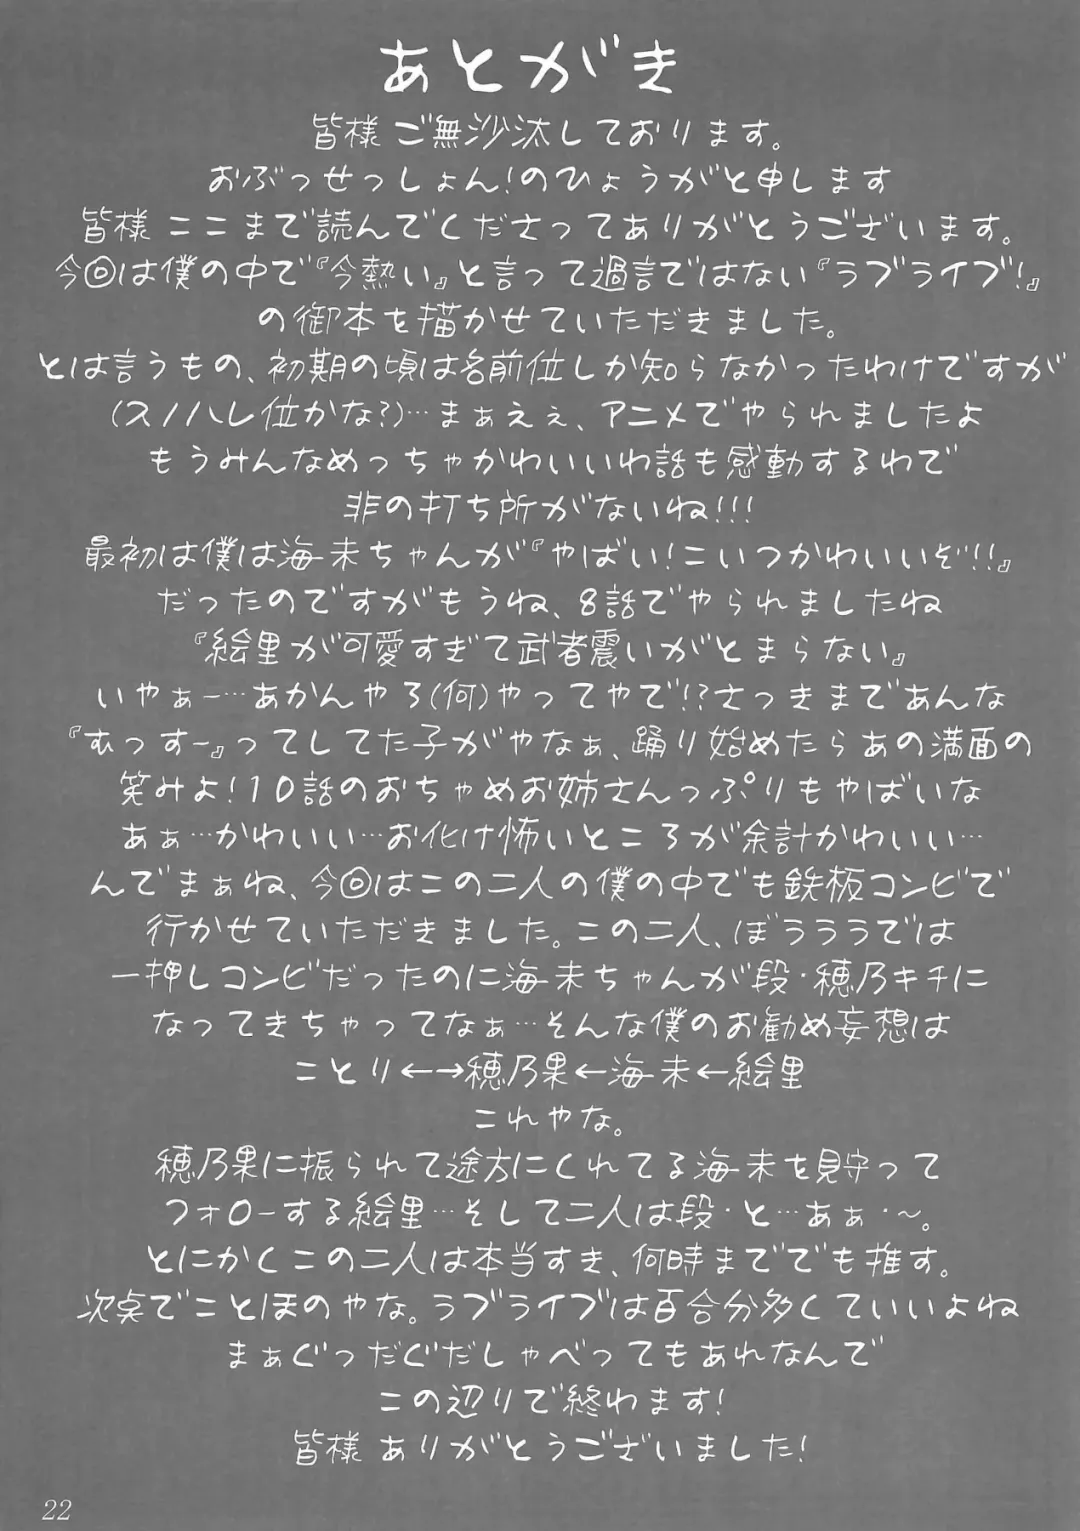 あとがき
皆様 ご無沙汰しております。
おぶっせっしょん!のひょうがと申します
皆様 ここまで読んでくださってありがとうございます。
今回は僕の中で『今熱い』と言って過言ではない『ラブライブ!』
の御本を描かせていただきました。
とは言うもの、初期の頃は名前位しか知らなかったわけですが
(スノハレ位かな?)…まぁえぇ、アニメでやられましたよ
もうみんなめっちゃかわいいわ話も感動するわで
非の打ち所がないね!!!
最初は僕は海未ちゃんが『やばい!こいつかわいいぞ!!』
だったのですがもうね、8話でやられましたね
『絵里が可愛すぎて武者震いがとまらない』
いやぁー…あかんやろ(何)やってやで!?さっきまであんな
『むっすー』ってしてた子がやなぁ、踊り始めたらあの満面の
笑みよ!10話のおちゃめお姉さんっぷりもやばいな
あぁ…かわいい…お化け怖いところが余計かわいい…
んでまぁね、今回はこの二人の僕の中でも鉄板コンビで
行かせていただきました。この二人、ぼうららでは
一押しコンビだったのに海未ちゃんが段・穂乃キチに
なってきちゃってなぁ…そんな僕のお勧め妄想は
ことり←→穂乃果←海未←絵里
これやな。
穂乃果に振られて途方にくれてる海未を見守って
フォローする絵里…そして二人は段・と…あぁ・~。
とにかくこの二人は本当すき、何時まででも推す。
次点でことほのやな。ラブライブは百合分多くていいよね
まぁぐっだぐだしゃべってもあれなんで
この辺りで終わます!
皆様 ありがとうございました!
22